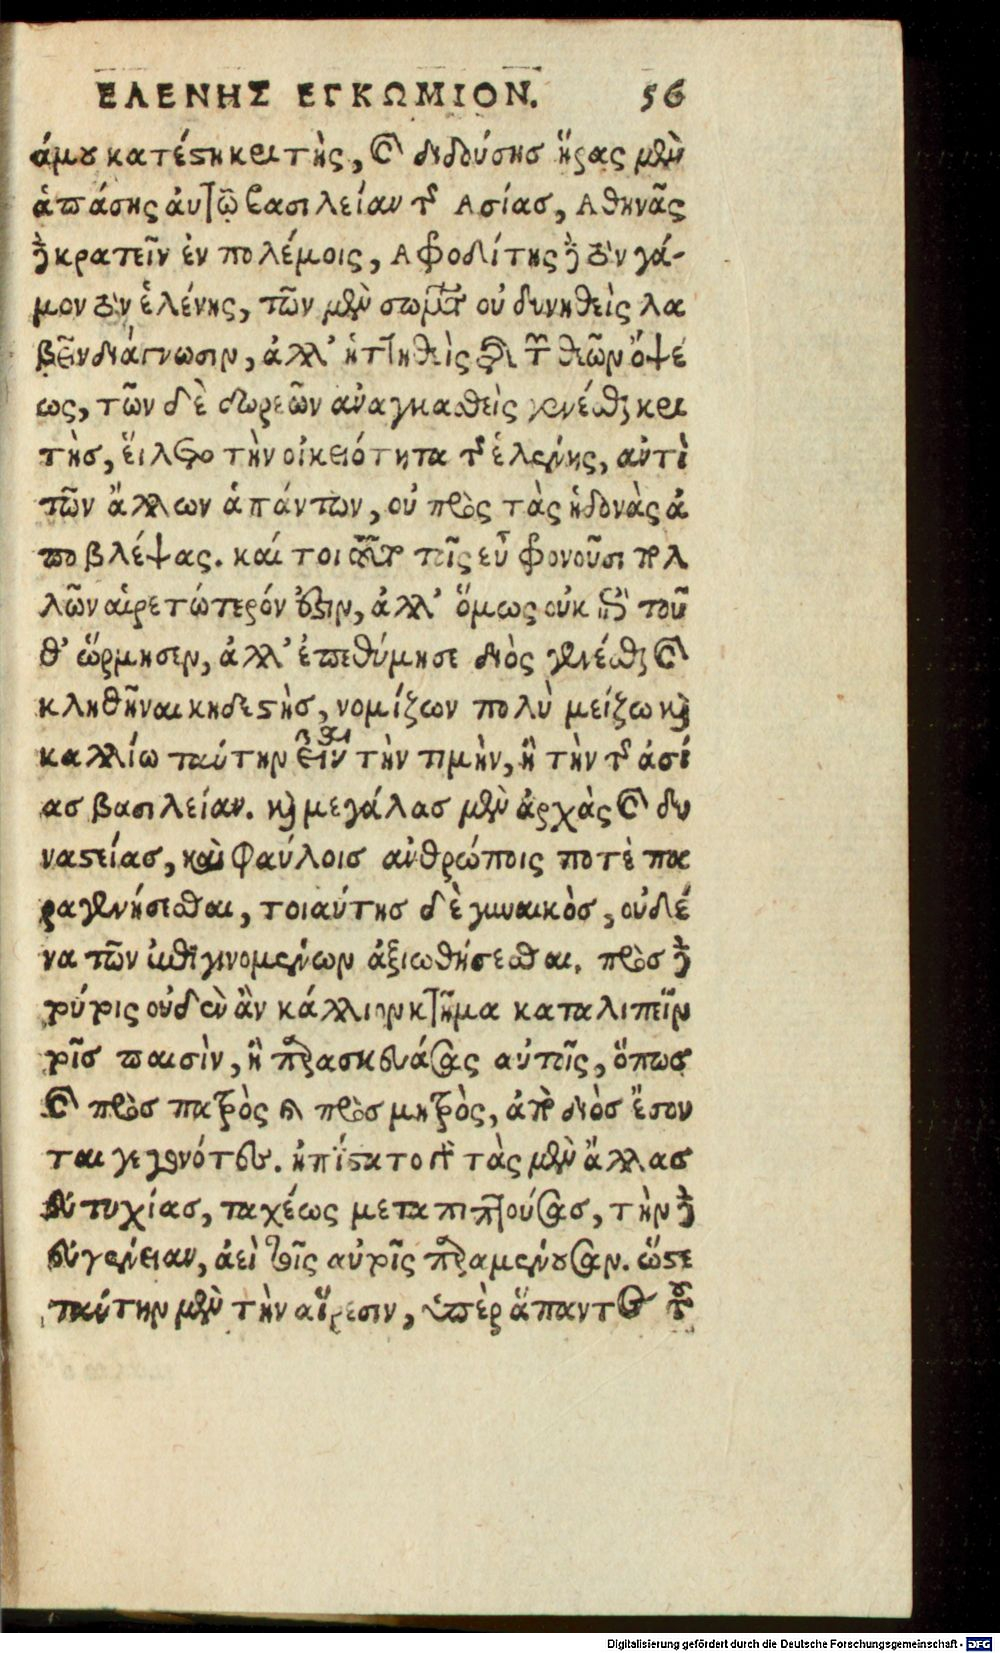 ΕΛΕΝΗΣ ΕΓΚΩΜΙΟΝ. 56
άμου κατέστη κριτὴς, καὶ διδούσης ἥρας μὲν
ἁπάσης ἀυτῷ βασιλείαν τῆς Ασίας, Αθηνᾶς
δὲ κρατεῖν ἐν πολέμοις, Αφροδίτης δὲ τὸν γά-
μον τὸν ἑλένης, τῶν μὲν σωμάτων οὐ δυνηθεὶς λα
βεῖν διάγνωσιν, ἀλλ' ἡττηθεὶς τῆς τῶν θεῶν ὄψε
ως, τῶν δὲ δωρεῶν ἀναγκασθεὶς γενέσθαι κρι
τὴς, εἵλετο τὴν οἰκειότητα τῆς ἑλένης, ἀντὶ
τῶν ἄλλων ἁπάντων, οὐ πρὸς τὰς ἡδονὰς ἀ
ποβλέψας. καί τοι καὶ τοῦτο τοῖς εὖ φρονοῦσι πολ
λῶν αἱρετώτερόν ἐστιν, ἀλλ' ὅμως οὐκ ἐπὶ τοῦ
θ' ὥρμησεν, ἀλλ' ἐπεθύμησε διὸς γενέσθαι καὶ
κληθῆναι κηδεστὴς, νομίζων πολὺ μείζω καὶ
καλλίω ταύτην εἶναι τὴν τιμὴν, ἢ τὴν τῆς ἀσί
ας βασιλείαν. καὶ μεγάλας μὲν ἀρχὰς καὶ δυ
ναστείας, καὶ φαύλοις ἀνθρώποις ποτὲ πα
ραγενήσεσθαι, τοιαύτης δὲ γυναικὸς, οὐδέ
να τῶν ἐπιγινομένων ἀξιωθήσεσθαι. πρὸς δὲ
τούτοις οὐδὲν ἂν κάλλιον κτῆμα καταλιπεῖν
τοῖς παισὶν, ἢ παρασκευάσας αὐτοῖς, ὅπως
καὶ πρὸς πατρὸς καὶ πρὸς μητρὸς, ἀπὸ διὸς ἔσον
ται γεγονότες. ἠπίστατο γὰρ τὰς μὲν ἄλλας
εὐτυχίας, ταχέως μεταπιπτούσας, τὴν δὲ
εὐγένειαν, ἀεὶ τοῖς αὐτοῖς παραμένουσαν. ὥστε
ταύτην μὲν τὴν αἵρεσιν, ὑπὲρ ἅπαντος τοῦ
Digitalisierung gefördert durch die Deutsche Forschungsgemeinschaft - DFG